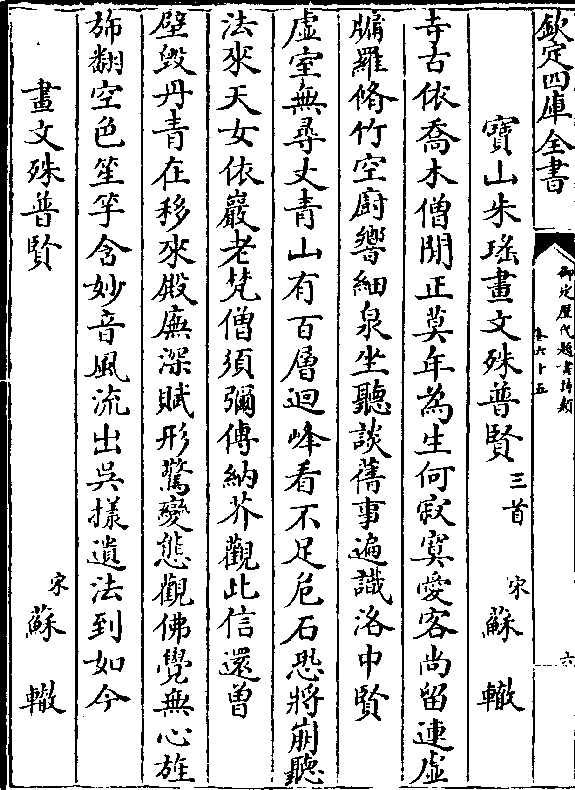 欽定四庫全書
御定歷代題畫詩類
卷六十五
六
寶山朱瑤畫文殊普賢三首 宋 蘇轍
寺古依喬木僧閒正莫年為生何寂寞愛客尚留連虛
牖羅脩竹空廚響細泉坐聽談舊事遍識洛中賢
虛室無尋丈青山有百層迴峰看不足危石恐將崩聽
法來天女依巖老梵僧須彌傳納芥觀此信還曾
壁毀丹青在移來殿廡深賦形驚變態觀佛覺無心旌
斾翻空色笙竽含妙音風流出吳㨾遺法到如今
畫文殊普賢 宋 蘇轍